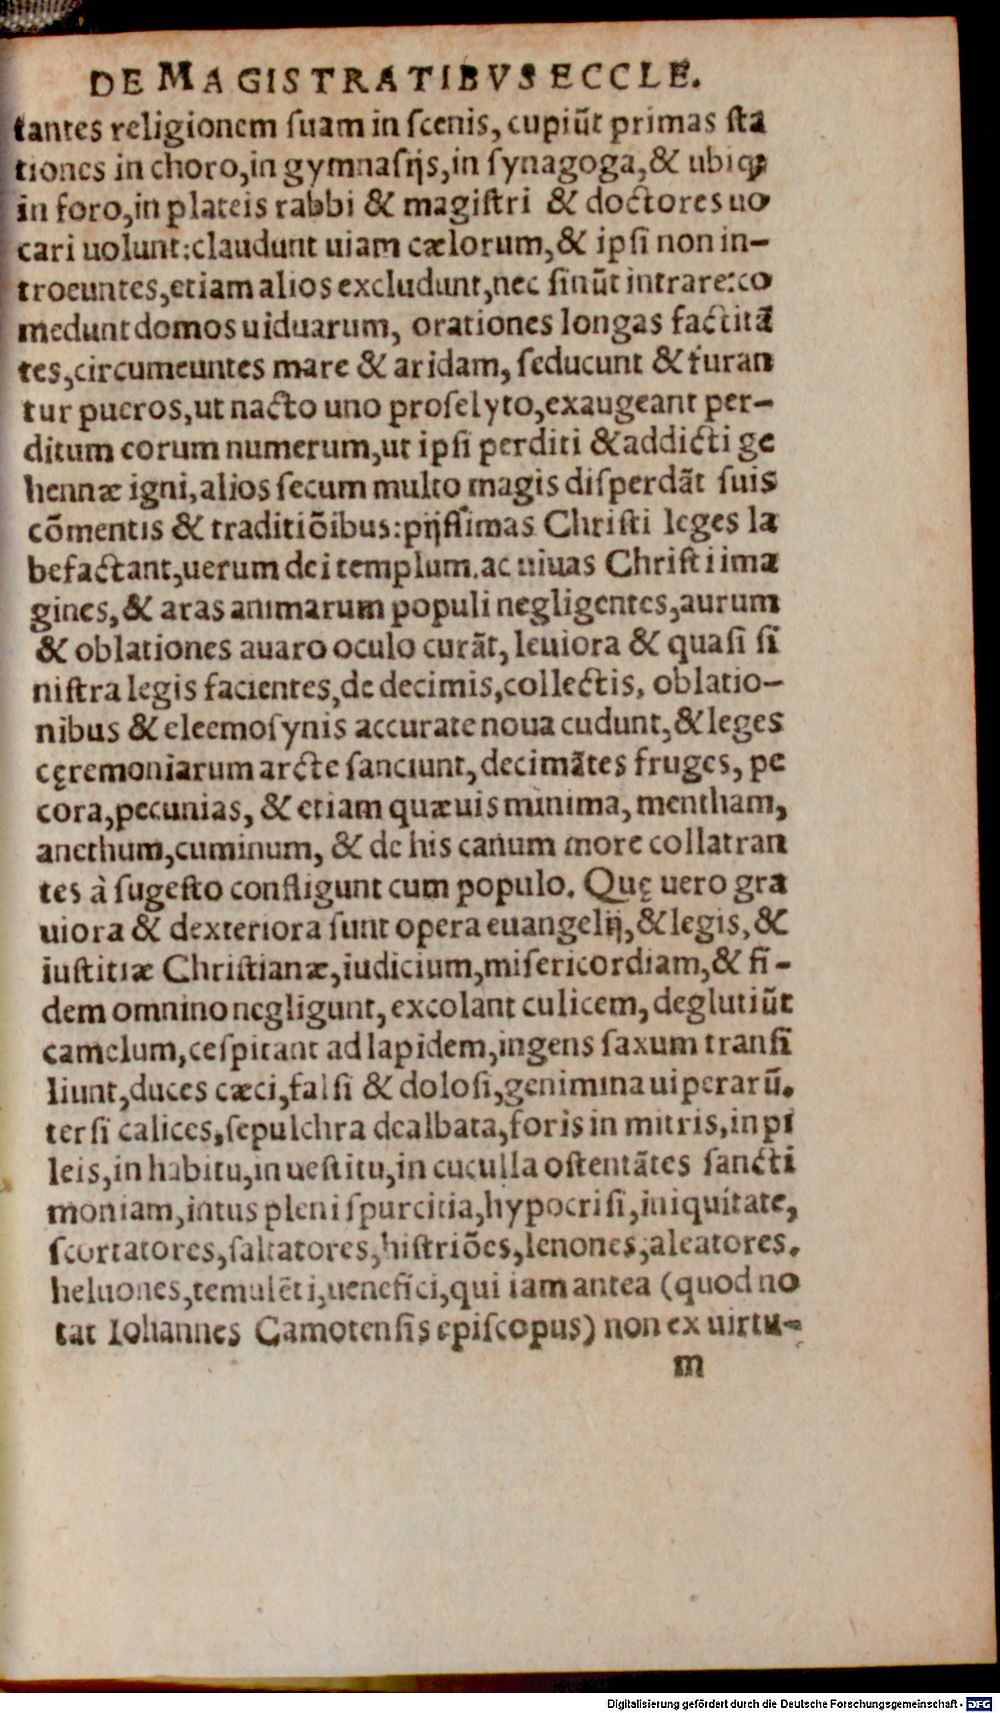 DE MAGISTRATIBVS ECCLE.
tantes religionem ſuam in ſcenis, cupiũt primas ſta
tiones in choro, in gymnaſijs, in ſynagoga, & ubiqꝫ
in foro, in plateis rabbi & magiſtri & doctores uo
cari uolunt: claudunt uiam cælorum, & ipſi non in-
troeuntes, etiam alios excludunt, nec ſinũt intrare: co
medunt domos uiduarum, orationes longas factitã
tes, circumeuntes mare & aridam, ſeducunt & furan
tur pueros, ut nacto uno proſelyto, exaugeant per-
ditum eorum numerum, ut ipſi perditi & addicti ge
hennæ igni, alios ſecum multo magis diſperdãt ſuis
cõmentis & traditiõibus: pijſſimas Chriſti leges la
befactant, uerum dei templum. ac uiuas Chriſti ima
gines, & aras animarum populi negligentes, aurum
& oblationes auaro oculo curãt, leuiora & quaſi ſi
niſtra legis facientes, de decimis, collectis, oblatio-
nibus & eleemoſynis accurate noua cudunt, & leges
cęremoniarum arcte ſanciunt, decimãtes fruges, pe
cora, pecunias, & etiam quæuis minima, mentham,
anethum, cuminum, & de his canum more collatran
tes à ſugeſto confligunt cum populo. Quę uero gra
uiora & dexteriora ſunt opera euangelij, & legis, &
iuſtitiæ Chriſtianæ, iudicium, miſericordiam, & fi-
dem omnino negligunt, excolant culicem, deglutiũt
camelum, ceſpitant ad lapidem, ingens ſaxum tranſi
liunt, duces cæci, falſi & doloſi, genimina uiperarũ.
terſi calices, ſepulchra dealbata, foris in mitris, in pi
leis, in habitu, in ueſtitu, in cuculla oſtentãtes ſancti
moniam, intus pleni ſpurcitia, hypocriſi, iniquitate,
ſcortatores, ſaltatores, hiſtriões, lenones, aleatores.
heluones, temulẽti, uenefici, qui iam antea (quod no
tat Iohannes Camotenſis epiſcopus) non ex uirtu-
m
Digitalisierung gefördert durch die Deutsche Forschungsgemeinschaft - DFG